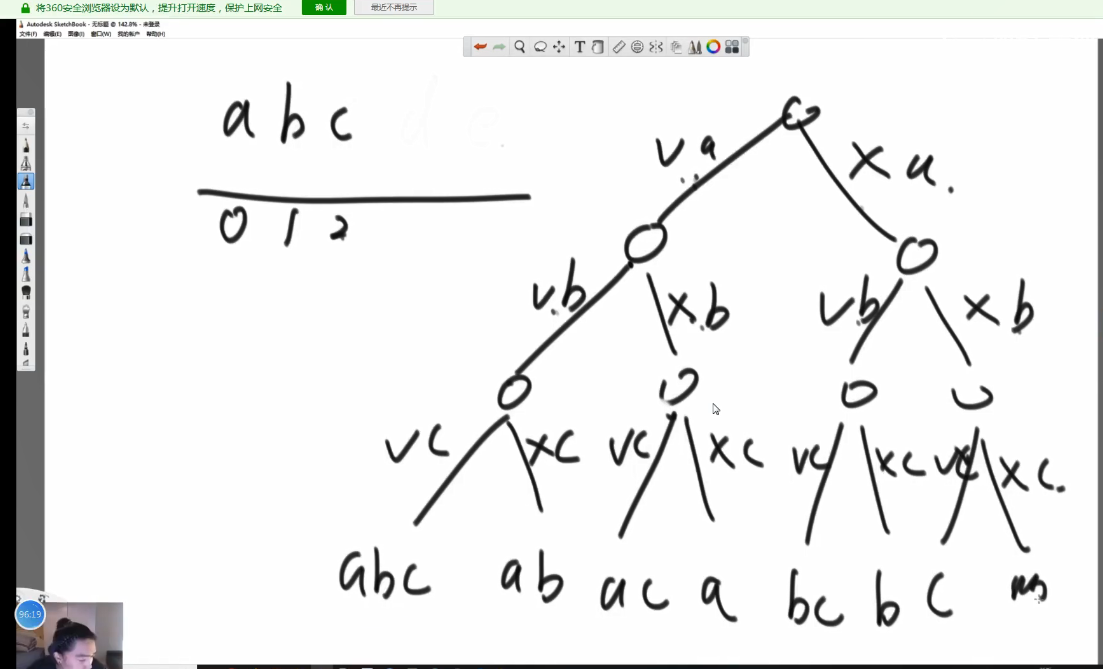 将360安全浏览器设为默认，提升打开速度，保护上网安全 确 认 最近不再提示
Autodesk SketchBook - 无标题 @ 142.8% - 未登录
文件(F) 编辑(E) 图像(I) 窗口(W) 我的帐户 帮助(H)
T
a b c
0 1 2
√ a × a.
√ b × b √ b × b
√ c × c √ c × c √ c × c √ c × c.
abc ab ac a bc b c
96:19